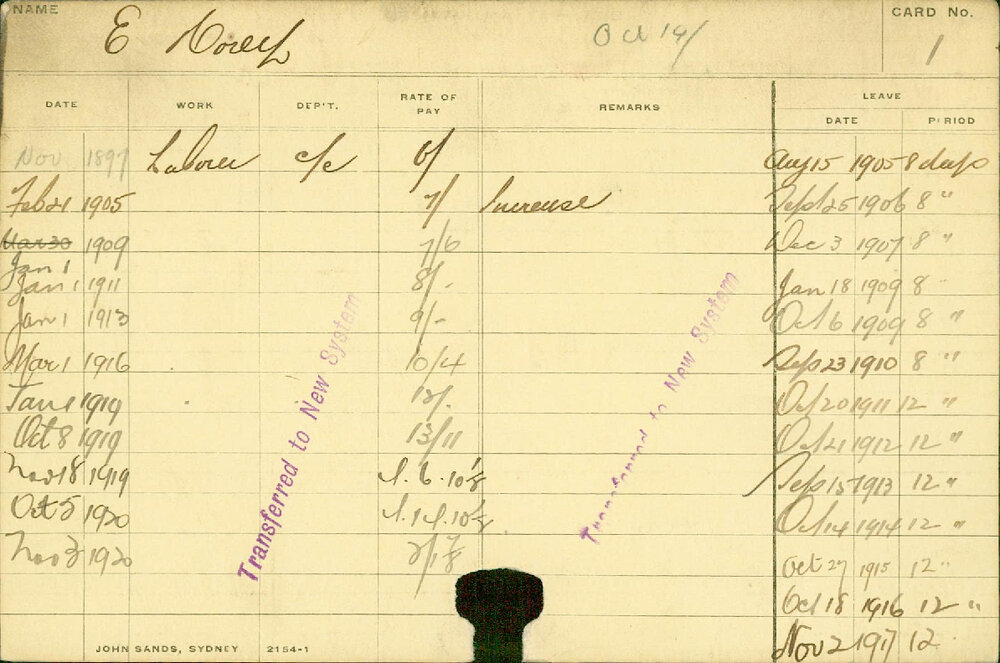 NAME
CARD No.
E
Oct 14/
1
DATE WORK DEP'T. RATE OF PAY REMARKS LEAVE
DATE PERIOD
Nov 1897 Laborer c/c 6/ Aug 15 1905 8 days
Feb 21 1905 7/ Increase Sept 25 1906 8 "
Mar 30 1909 7/6 Dec 3 1907 8 "
Jan 1
Jan 1 1911 8/- Jan 18 1909 8 "
Jan 1 1913 9/- Oct 6 1909 8 "
Mar 1 1916 10/4 Sep 23 1910 8 "
Jan 1 1919 12/- Oct 20 1911 12 "
Oct 8 1919 13/11 Oct 21 1912 12 "
Nov 18 1919 Sep 15 1913 12 "
Oct 5 1920 Oct 14 1914 12 "
Nov 3 1920 Oct 27 1915 12 "
Oct 18 1916 12 "
Nov 2 1917 12
Transferred to New System
Transferred to New System
JOHN SANDS, SYDNEY 2154-1